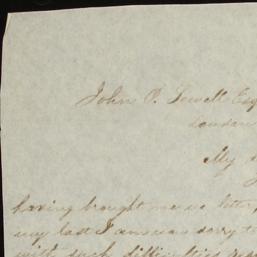 John P. Sewall Esq
My
having brought me no letter,
my last I am sorry to
with such difficulties